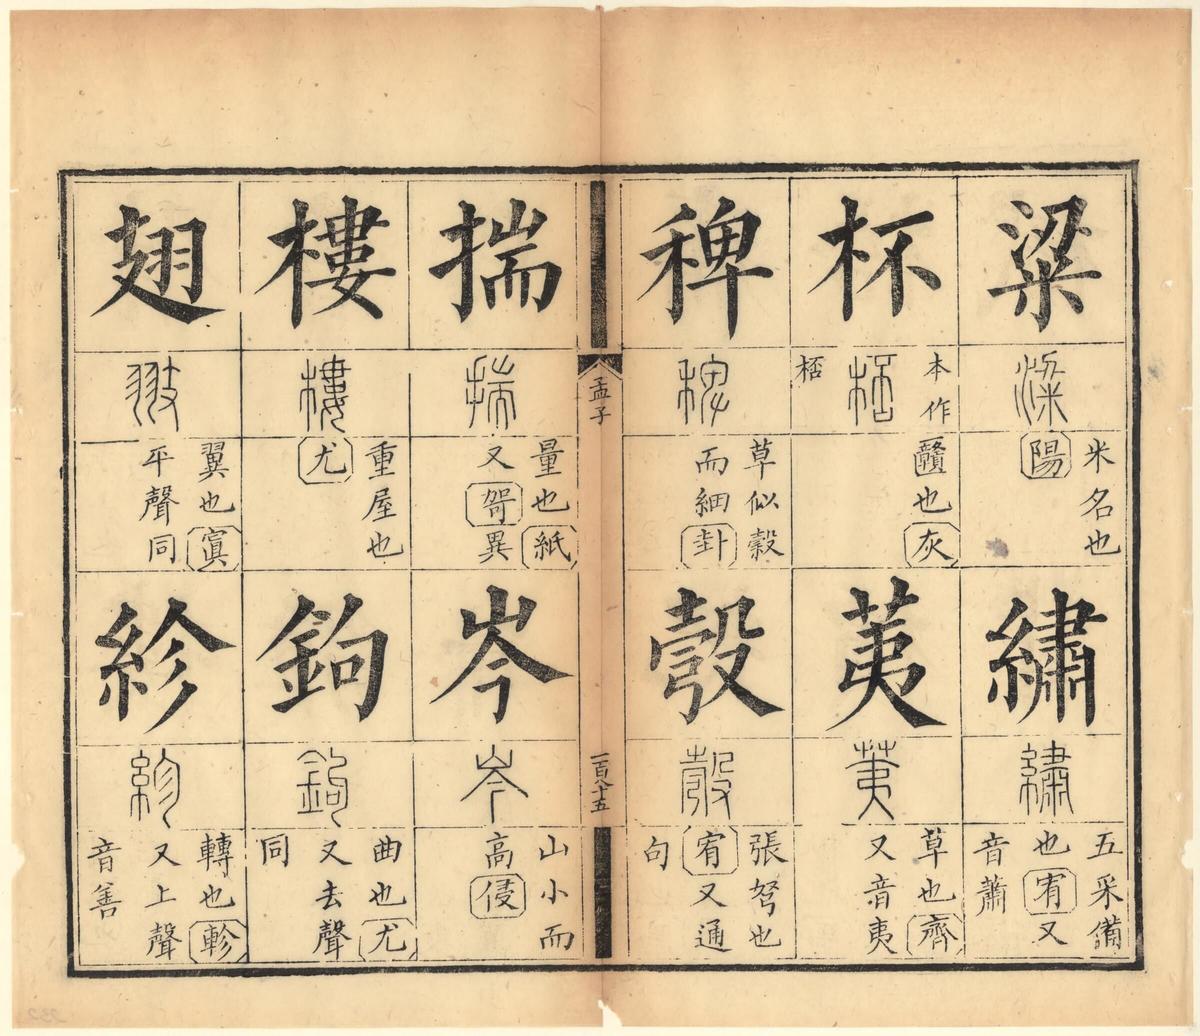 粱
粱
米名也
陽
繡
繡
五采備
也宥又
音蕭
杯
本作
桮
桮
㔶也灰
荑
荑
草也齊
又音夷
稗
稗
草似穀
而細卦
彀
彀
張弩也
宥又通
句
孟子
一百八十五
揣
揣
量也紙
又哿異
岑
岑
山小而
高侵
樓
樓
重屋也
尤
鉤
鉤
曲也尤
又去聲
同
翅
翅
翼也寘
平聲同
紾
紾
轉也軫
又上聲
音善